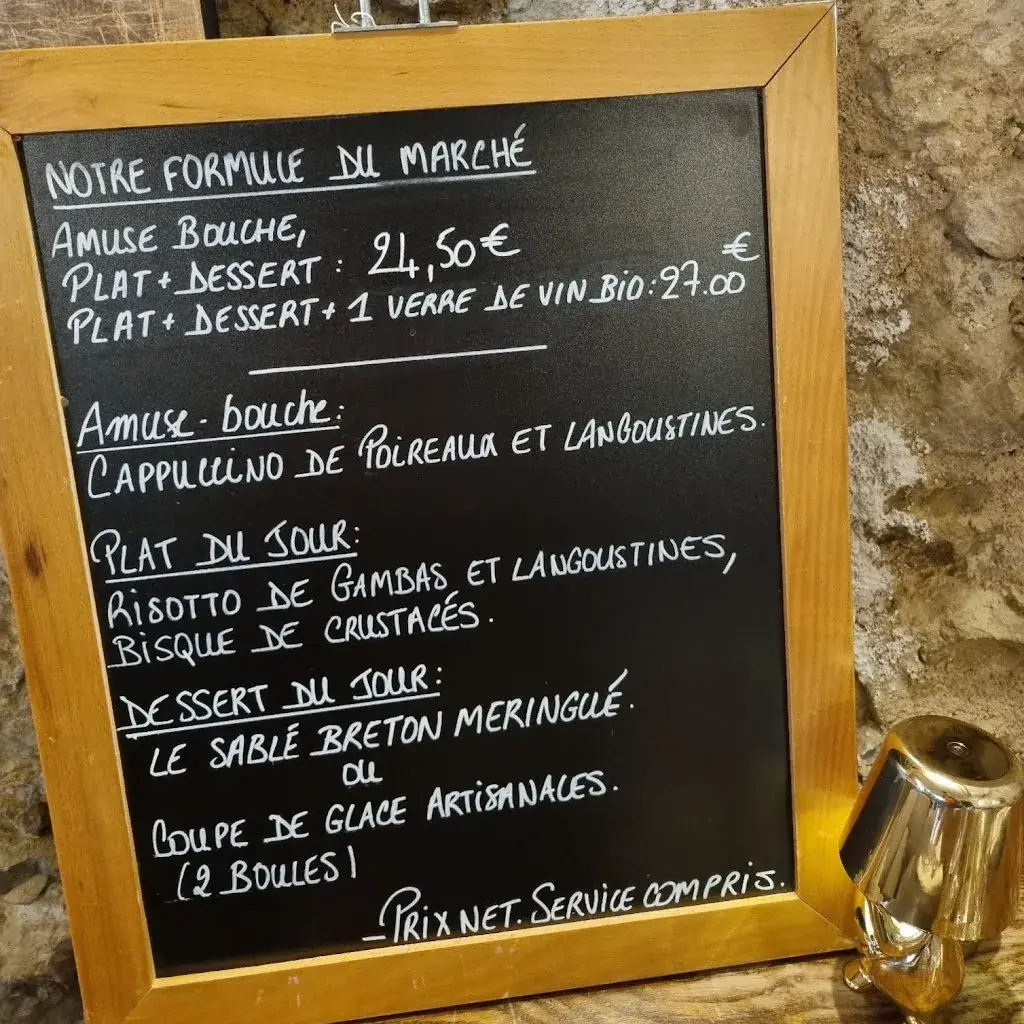 NOTRE FORMULE DU MARCHÉ
AMUSE BOUCHE,
PLAT + DESSERT : 24,50€
PLAT + DESSERT + 1 VERRE DE VIN BIO : 27.00€
Amuse-bouche:
CAPPUCCINO DE POIREAUX ET LANGOUSTINES.
PLAT DU JOUR:
RISOTTO DE GAMBAS ET LANGOUSTINES,
BISQUE DE CRUSTACÉS.
DESSERT DU JOUR:
LE SABLÉ BRETON MERINGUÉ.
OU
COUPE DE GLACE ARTISANALES.
(2 BOULES)
- PRIX NET. SERVICE COMPRIS.